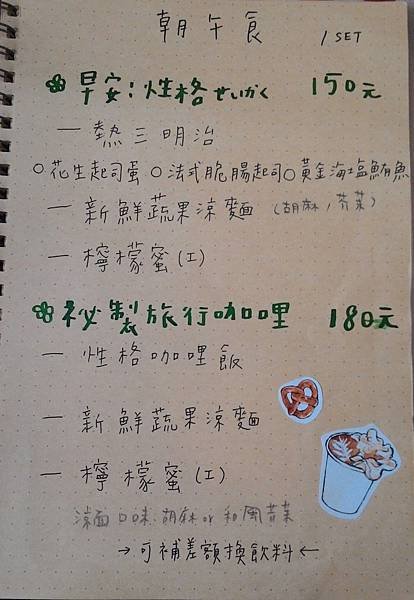 朝午食 1 SET
早安!性格せいかく 150元
一 熱三明治
○花生起司蛋 ○法式脆腸起司○黃金海塩鮪魚
一 新鮮蔬果涼麵 (胡麻/芥茉)
一 檸檬蜜(I)
祕製旅行咖哩 180元
一 性格咖哩飯
一 新鮮蔬果涼麵
一 檸檬蜜(I)
涼面口味:胡麻or和風芥茉
→可補差額換飲料←